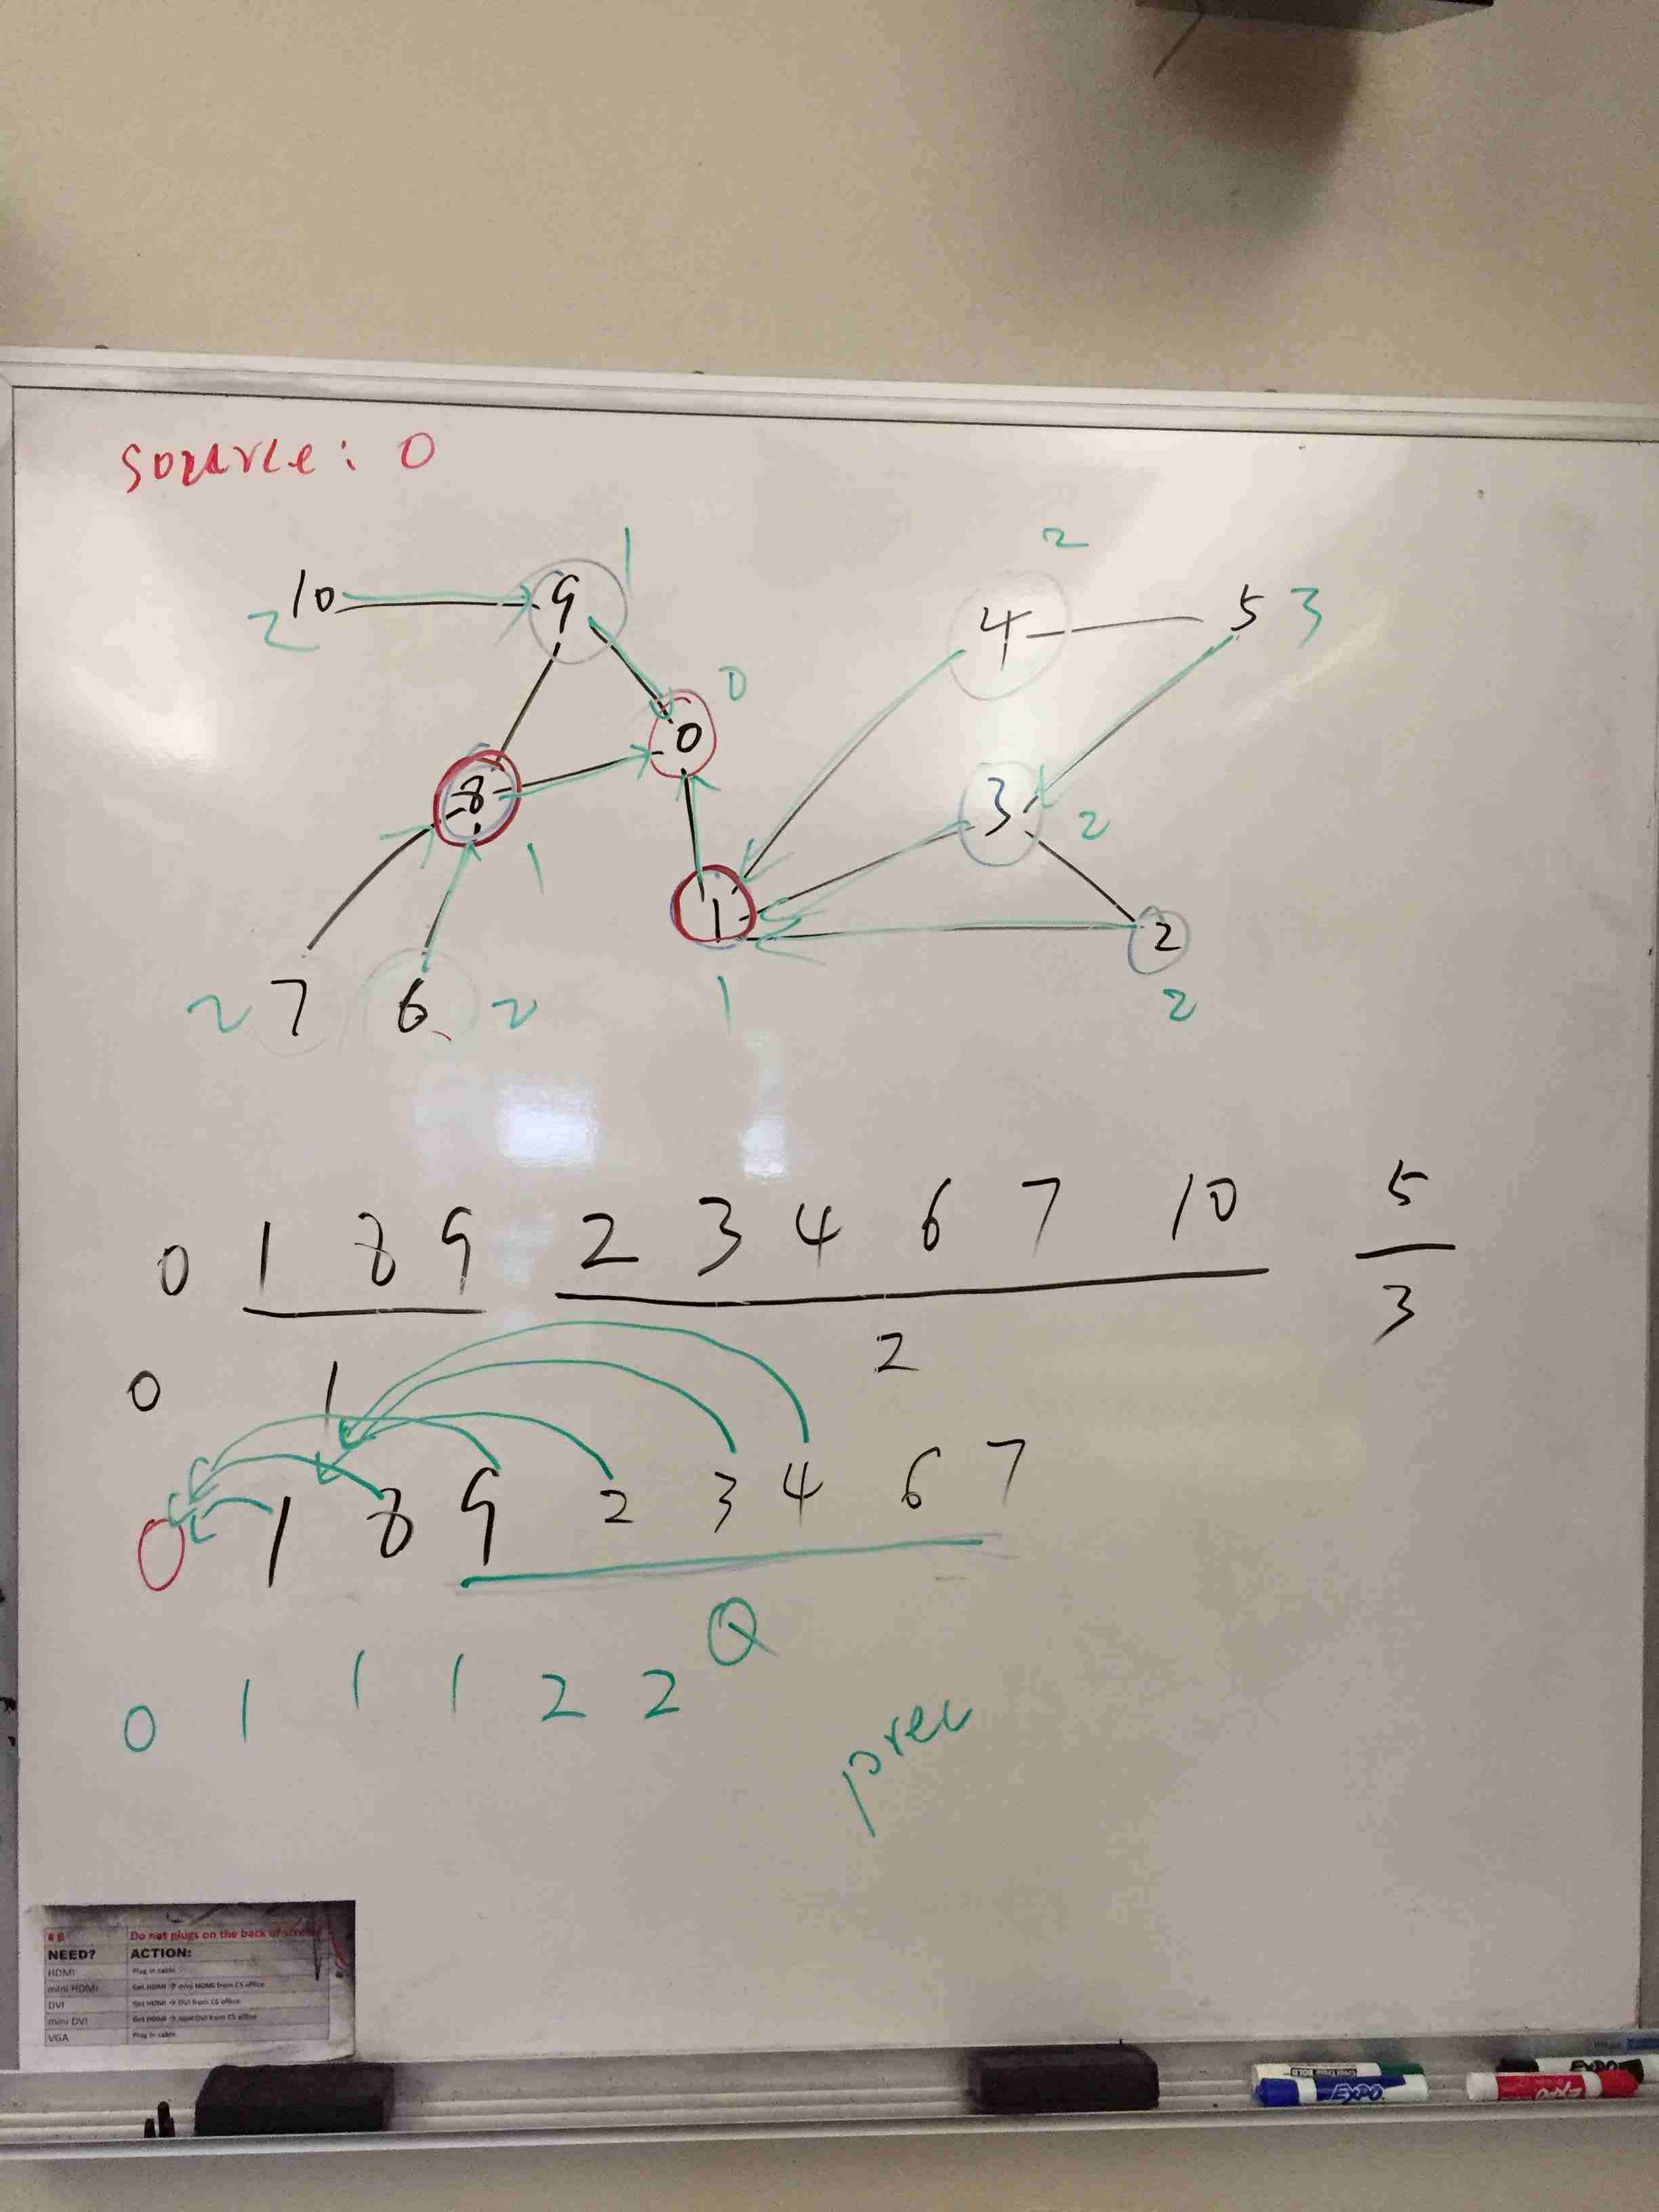 source: 0
2
1
10
9
2
4
5
3
0
0
8
3
2
1
1
2
7
6
2
1
2
2
0 1 8 9 2 3 4 6 7 10 5
3
2
0 1
0 1 8 9 2 3 4 6 7
Q
0 1 1 1 2 2
prev
Do not plugs on the back of
NEED? ACTION:
HDMI Plug in cable
mini HDMI Get HDMI → mini HDMI from CS office
DVI Get HDMI → DVI from CS office
mini DVI Get HDMI → mini DVI from CS office
VGA Plug in cable
EXPO
EXPO
EXPO